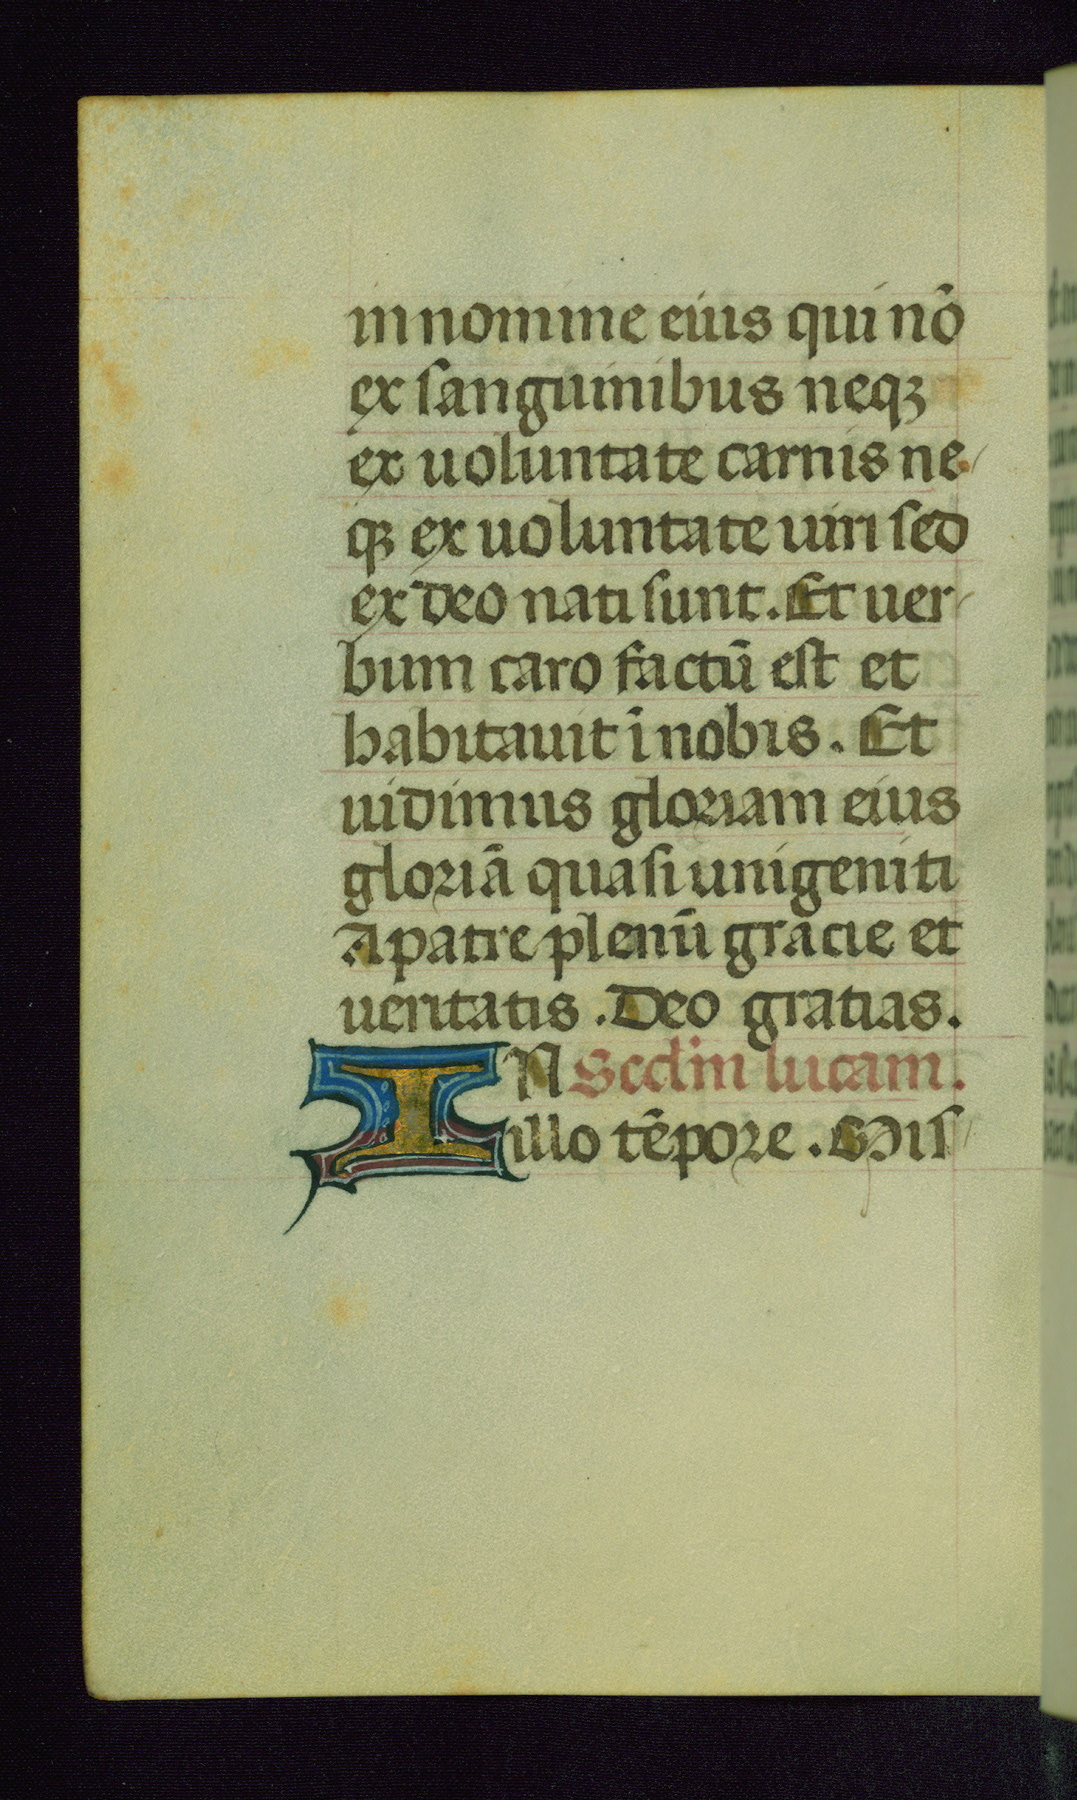 in nomine eius qui nō
ex sanguinibus neqꝫ
ex uoluntate carnis ne-
qꝫ ex uoluntate uiri sed
ex deo nati sunt. Et uer-
bum caro factū est et
habitauit ī nobis. Et
uidimus gloriam eius
gloriā quasi unigeniti
A patre plenū gracie et
ueritatis. Deo gratias.
IN Scdm lucam.
illo tēpore. Mis-